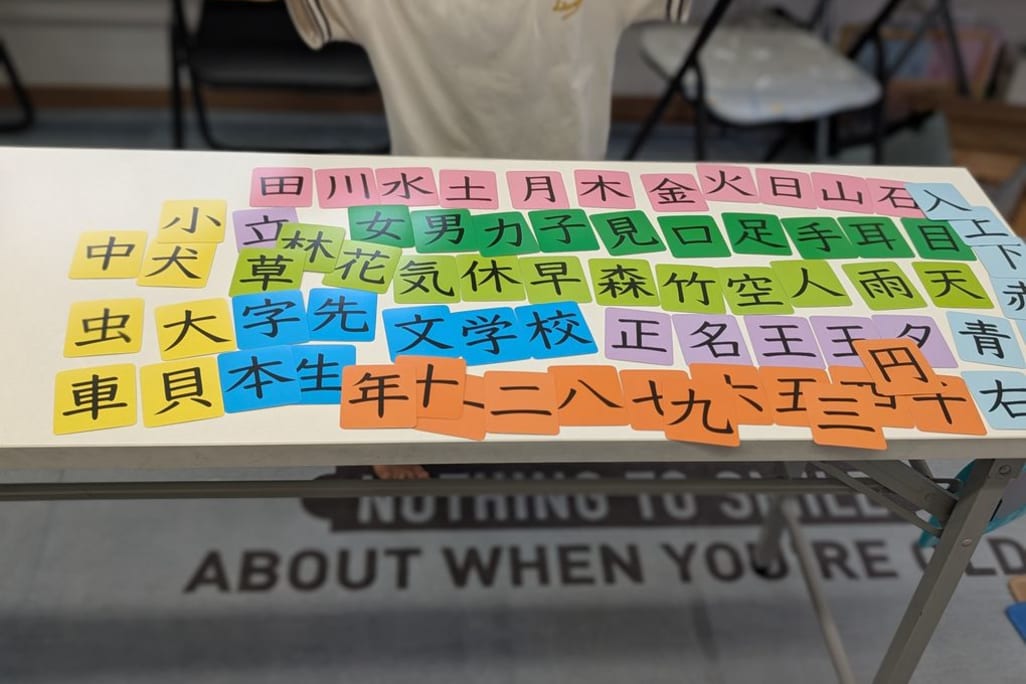 田川水土月木金火日山石入
小立女男力子見口足手耳目上
中犬林花下
草気休早森竹空人雨天赤
虫大字先文学校正名王王夕青
車貝本生年十二八七九六五三円千右
NOTHING TO SMILE
ABOUT WHEN YOU'RE OLD